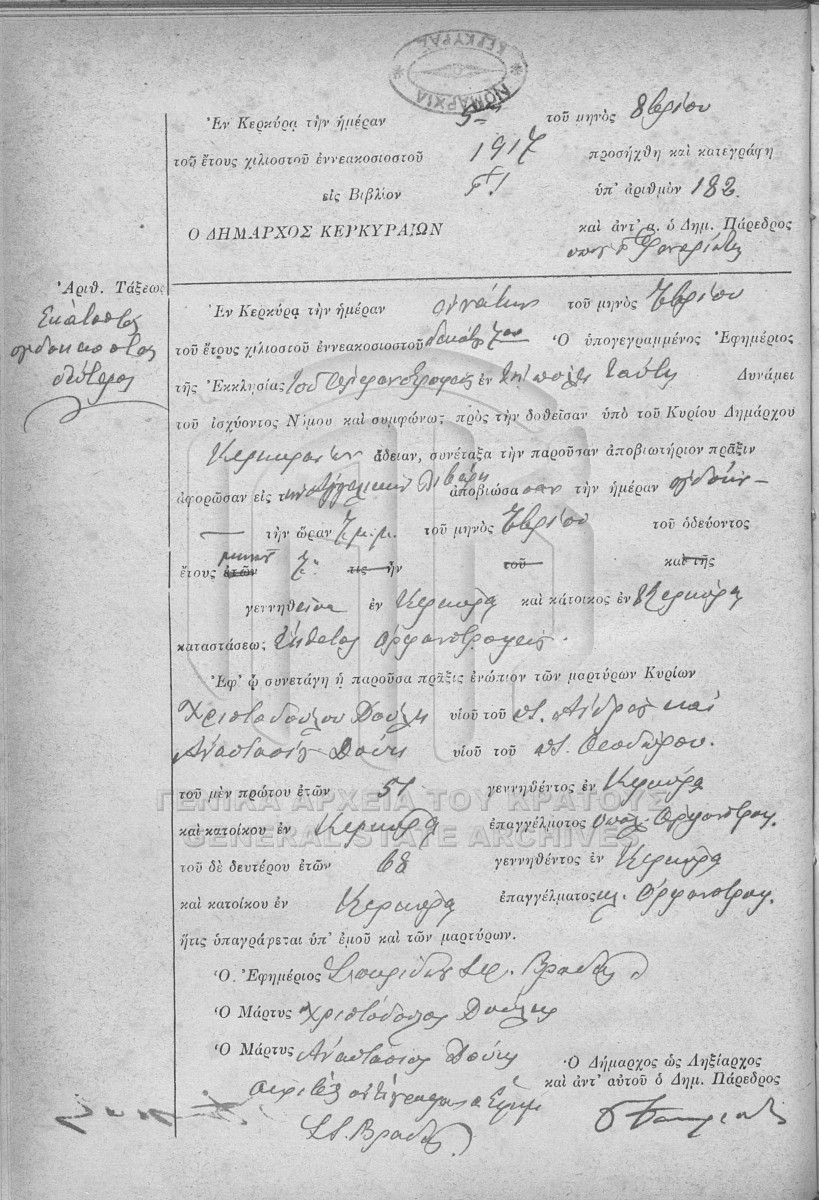 ΝΟΜΑΡΧΙΑ ΚΕΡΚΥΡΑΣ
Ἐν Κερκύρᾳ τὴν ἡμέραν 5 τοῦ μηνὸς 8βρίου
τοῦ ἔτους χιλιοστοῦ ἐννεακοσιοστοῦ 1917 προσήχθη καὶ κατεγράφη
εἰς Βιβλίον ὑπ' ἀριθμὸν 182
Ο ΔΗΜΑΡΧΟΣ ΚΕΡΚΥΡΑΙΩΝ καὶ ἀντ' α. ὁ Δημ. Πάρεδρος
Ἀριθ. Τάξεως
Ἑκατοστὸς
ὀγδοηκοστὸς
δεύτερος
Ἐν Κερκύρᾳ τὴν ἡμέραν ἐννάτην τοῦ μηνὸς 7βρίου
τοῦ ἔτους χιλιοστοῦ ἐννεακοσιοστοῦ δεκάτ. 7ου Ὁ ὑπογεγραμμένος Ἐφημέριος
τῆς Ἐκκλησίας τοῦ Ὀρφανοτροφείου ἐν τῇ πόλει ταύτῃ Δυνάμει
τοῦ ἰσχύοντος Νόμου καὶ συμφώνως πρὸς τὴν δοθεῖσαν ὑπὸ τοῦ Κυρίου Δημάρχου
Κερκυραίων ἄδειαν, συνέταξα τὴν παροῦσαν ἀποβιωτήριον πρᾶξιν
ἀφορῶσαν εἰς τὴν Ἀγγελικὴν ἀποβιώσασαν τὴν ἡμέραν ὀγδόην
τὴν ὥραν 7 μ.μ. τοῦ μηνὸς 7βρίου τοῦ ὁδεύοντος
ἔτους ἐτῶν μηνῶν 7 τις ἦν τοῦ καὶ τῆς
γεννηθεῖσα ἐν Κερκύρᾳ καὶ κάτοικος ἐν Κερκύρᾳ
καταστάσεως ἔκθετος Ὀρφανοτροφείου.
Ἐφ' ᾧ συνετάγη ἡ παροῦσα πρᾶξις ἐνώπιον τῶν μαρτύρων Κυρίων
Χριστοδούλου Δούλη υἱοῦ τοῦ π. Ἀνδρέου καὶ
Ἀναστασίου Δούη υἱοῦ τοῦ π. Θεοδώρου.
τοῦ μὲν πρώτου ἐτῶν 51 γεννηθέντος ἐν Κερκύρᾳ
καὶ κατοίκου ἐν Κερκύρᾳ ἐπαγγέλματος ὑπάλ. Ὀρφανοτροφ.
τοῦ δὲ δευτέρου ἐτῶν 68 γεννηθέντος ἐν Κερκύρᾳ
καὶ κατοίκου ἐν Κερκύρᾳ ἐπαγγέλματος Ὀρφανοτροφ.
ἥτις ὑπαγράφεται ὑπ' ἐμοῦ καὶ τῶν μαρτύρων.
Ὁ Ἐφημέριος Σπυρίδων Βραδῆς
Ὁ Μάρτυς Χριστόδουλος Δούλης
Ὁ Μάρτυς Ἀναστάσιος Δούης
Ὁ Δήμαρχος ὡς Ληξίαρχος
καὶ ἀντ' αὐτοῦ ὁ Δημ. Πάρεδρος
ΓΕΝΙΚΑ ΑΡΧΕΙΑ ΤΟΥ ΚΡΑΤΟΥΣ
GENERAL STATE ARCHIVES